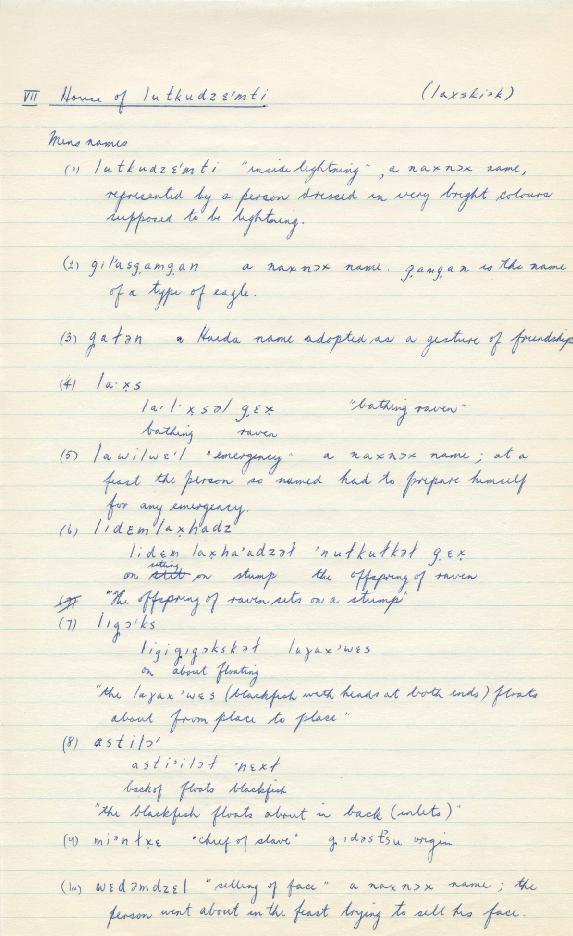 VII House of lutkudzɛ'mti (laxski·k)
Mens names
(1) lutkudzɛ'mti "inside lightning", a naxnɔx name,
represented by a person dressed in very bright colours
supposed to be lightning.
(2) gil'asgamgan a naxnɔx name. gangan is the name
of a type of eagle.
(3) gałən a Haida name adopted as a gesture of friendship
(4) la·xs
la·l·xsəl gɛx "bathing raven"
bathing raven
(5) lawilwɛ'l "emergency" a naxnɔx name; at a
feast the person so named had to prepare himself
for any emergency.
(6) lidɛm laxhadz
lidɛm laxha'adzəł 'nułkułkəł gɛx
sitting
on on stump the offspring of raven
"The offspring of raven sits on a stump"
(7) ligɔ'ks
ligigigəkskəł layax'wɛs
on about floating
"the layax'wɛs (blackfish with heads at both ends) floats
about from place to place"
(8) astilɔ'
asti'ilɔł 'nɛxł
back of floats blackfish
"the blackfish floats about in back (inlets)"
(9) mi·ntxɛ "chief of slave" origin
(10) wɛdəmdzɛl "selling of face" a naxnɔx name; the
person went about in the feast trying to sell his face.